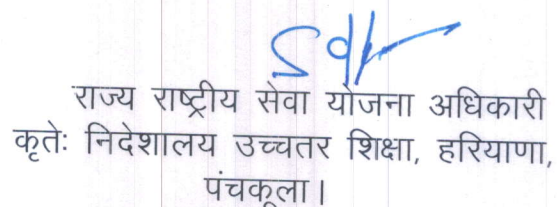 Sd/-
राज्य राष्ट्रीय सेवा योजना अधिकारी
कृतेः निदेशालय उच्चतर शिक्षा, हरियाणा,
पंचकूला।